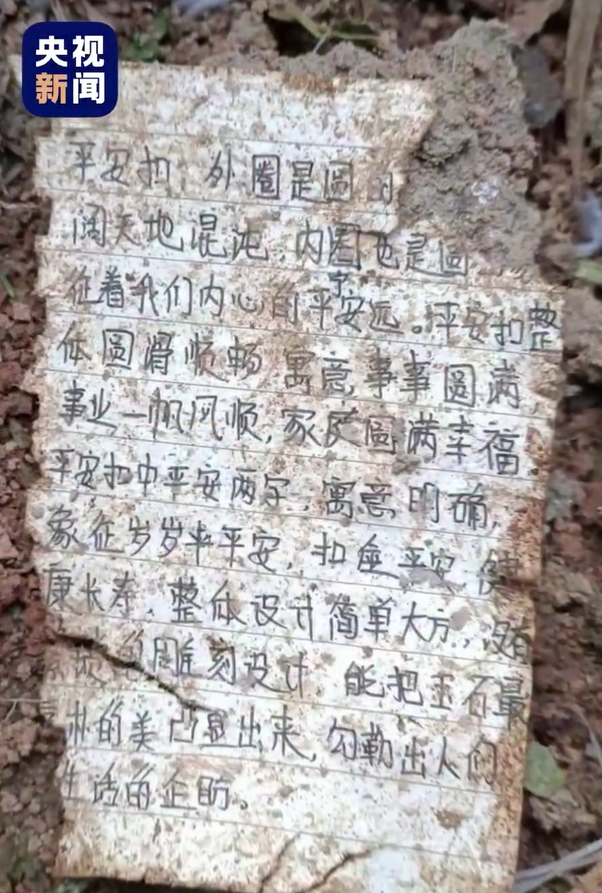 央视
新闻
平安扣,外圈是圆
阔天地混沌,内圈也是圆
征着我们内心的平安宁远。平安扣整
体圆滑顺畅 寓意事事圆满,
事业一帆风顺,家庭圆满幸福
平安扣中平安两字,寓意明确,
象征岁岁平平安,扣座平安 健
康长寿,整体设计简单大方,没有
雕刻设计 能把玉石最
的美凸显出来,勾勒出人们
生活的企盼。